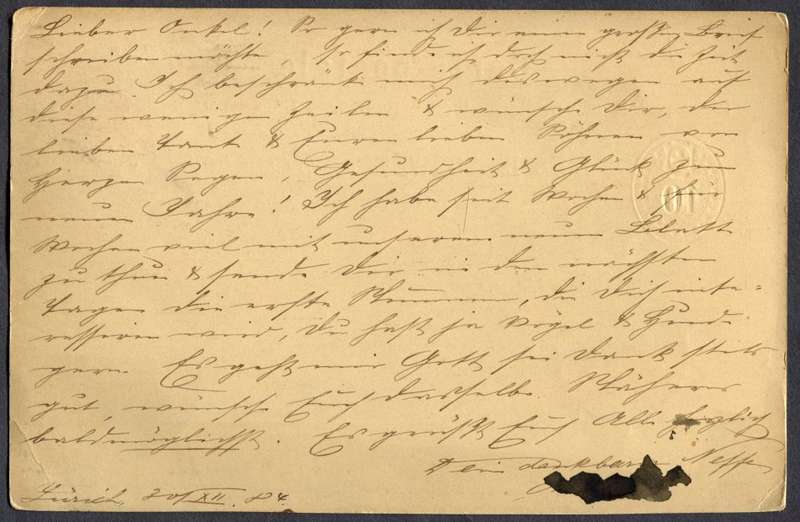 Lieber Onkel! So gern ich Dir einen großen Brief
schreiben möchte so finde ich doch nicht die Zeit
dazu. Ich beschränke mich deswegen auf
diese wenigen Zeilen & wünsche Dir, der
lieben Tante & Euren lieben Söhnen von
Herzen Segen, Gesundheit & Glück zum
neuen Jahre! Ich habe seit Wochen &
Wochen viel mit unserem neuen Blatte
zu thun & sende Dir in den nächsten
Tagen die erste Nummer, die Dich inte-
ressiren wird, Du hast ja Vögel & Hunde
gern. Es geht mir Gott sei Dank stets
gut, wünsche Euch dasselbe. Näheres
baldmöglichst. Es grüßt Euch Alle herzlich
Dein dankbarer Neffe
Zürich, 20/XII. 84